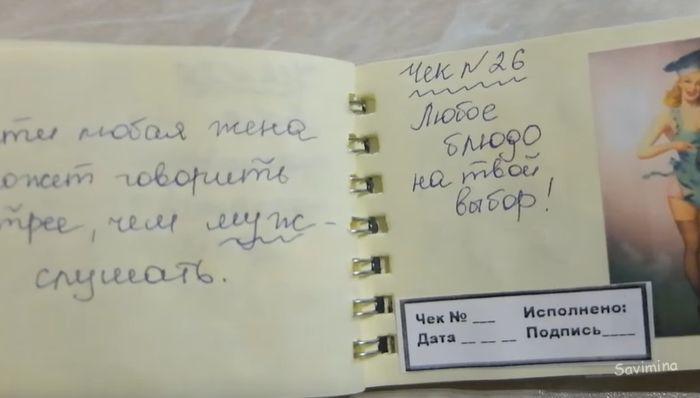 любая жена
говорить
чем муж -
слушать.
Чек N 26
Любое
блюдо
на твой
выбор!
Чек № ___ Исполнено:
Дата __ __ __ Подпись____
Savimina